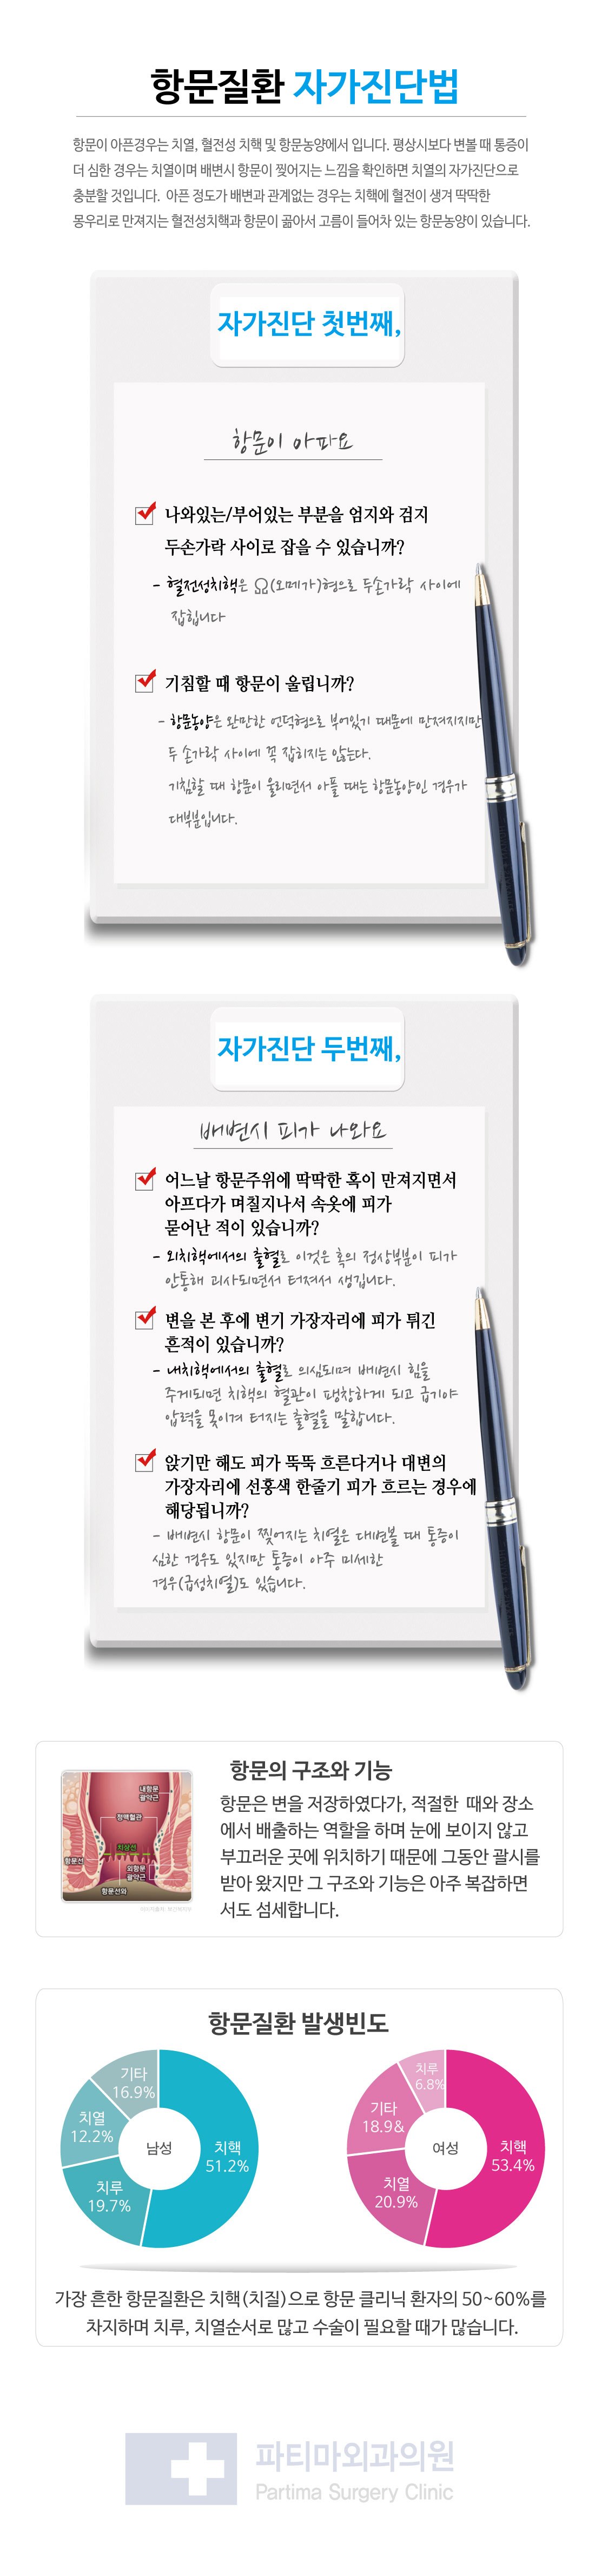 항문질환 자가진단법
항문이 아픈경우는 치열, 혈전성 치핵 및 항문농양에서 입니다. 평상시보다 변볼 때 통증이
더 심한 경우는 치열이며 배변시 항문이 찢어지는 느낌을 확인하면 치열의 자가진단으로
충분할 것입니다. 아픈 정도가 배변과 관계없는 경우는 치핵에 혈전이 생겨 딱딱한
몽우리로 만져지는 혈전성치핵과 항문이 곪아서 고름이 들어차 있는 항문농양이 있습니다.
자가진단 첫번째,
항문이 아파요
나와있는/부어있는 부분을 엄지와 검지
두손가락 사이로 잡을 수 있습니까?
- 혈전성치핵은 Ω(오메가)형으로 두손가락 사이에
잡힙니다
기침할 때 항문이 울립니까?
- 항문농양은 완만한 언덕형으로 부어있기 때문에 만져지지만
두 손가락 사이에 꼭 잡히지는 않는다.
기침할 때 항문이 울리면서 아플 때는 항문농양인 경우가
대부분입니다.
자가진단 두번째,
배변시 피가 나와요
어느날 항문주위에 딱딱한 혹이 만져지면서
아프다가 며칠지나서 속옷에 피가
묻어난 적이 있습니까?
- 외치핵에서의 출혈로 이것은 혹의 정상부분이 피가
안통해 괴사되면서 터져서 생깁니다.
변을 본 후에 변기 가장자리에 피가 튀긴
흔적이 있습니까?
- 내치핵에서의 출혈로 의심되며 배변시 힘을
주게되면 치핵의 혈관이 팽창하게 되고 급기야
압력을 못이겨 터지는 출혈을 말합니다.
앉기만 해도 피가 뚝뚝 흐른다거나 대변의
가장자리에 선홍색 한줄기 피가 흐르는 경우에
해당됩니까?
- 배변시 항문이 찢어지는 치열은 대변볼 때 통증이
심한 경우도 있지만 통증이 아주 미세한
경우(급성치열)도 있습니다.
항문의 구조와 기능
항문은 변을 저장하였다가, 적절한 때와 장소
에서 배출하는 역할을 하며 눈에 보이지 않고
부끄러운 곳에 위치하기 때문에 그동안 괄시를
받아 왔지만 그 구조와 기능은 아주 복잡하면
서도 섬세합니다.
내항문
괄약근
정맥혈관
치상선
항문선
외항문
괄약근
항문선와
항문질환 발생빈도
기타
16.9%
치열
12.2%
치루
19.7%
남성
치핵
51.2%
치루
6.8%
기타
18.9&
치열
20.9%
여성
치핵
53.4%
가장 흔한 항문질환은 치핵(치질)으로 항문 클리닉 환자의 50~60%를
차지하며 치루, 치열순서로 많고 수술이 필요할 때가 많습니다.
파티마외과의원
Partima Surgery Clinic